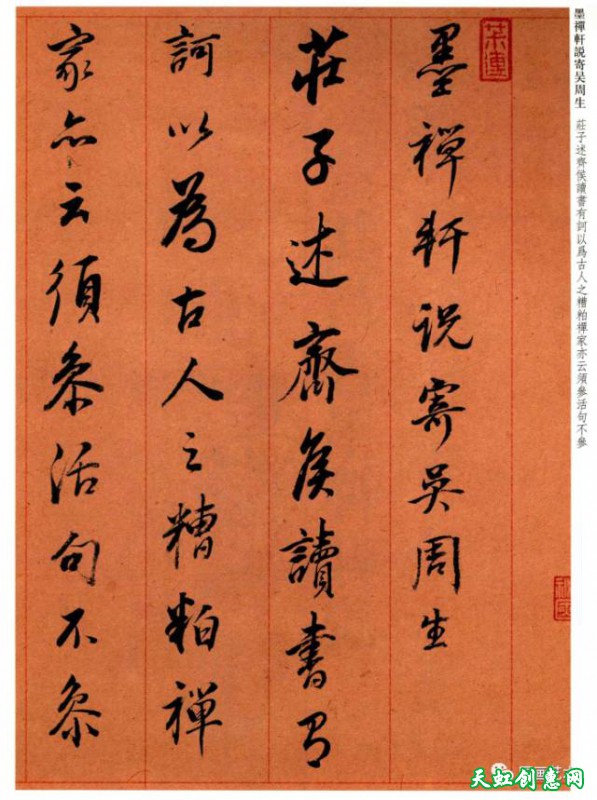 墨禪軒説寄吴周生
莊子述齊侯讀書有訶以爲古人之糟粕禪家亦云須參活句不參
墨禪軒说寄吳周生
莊子述齊侯讀書有
訶以為古人之糟粕禪
家亦云須叅活句不叅
天虹创惠网